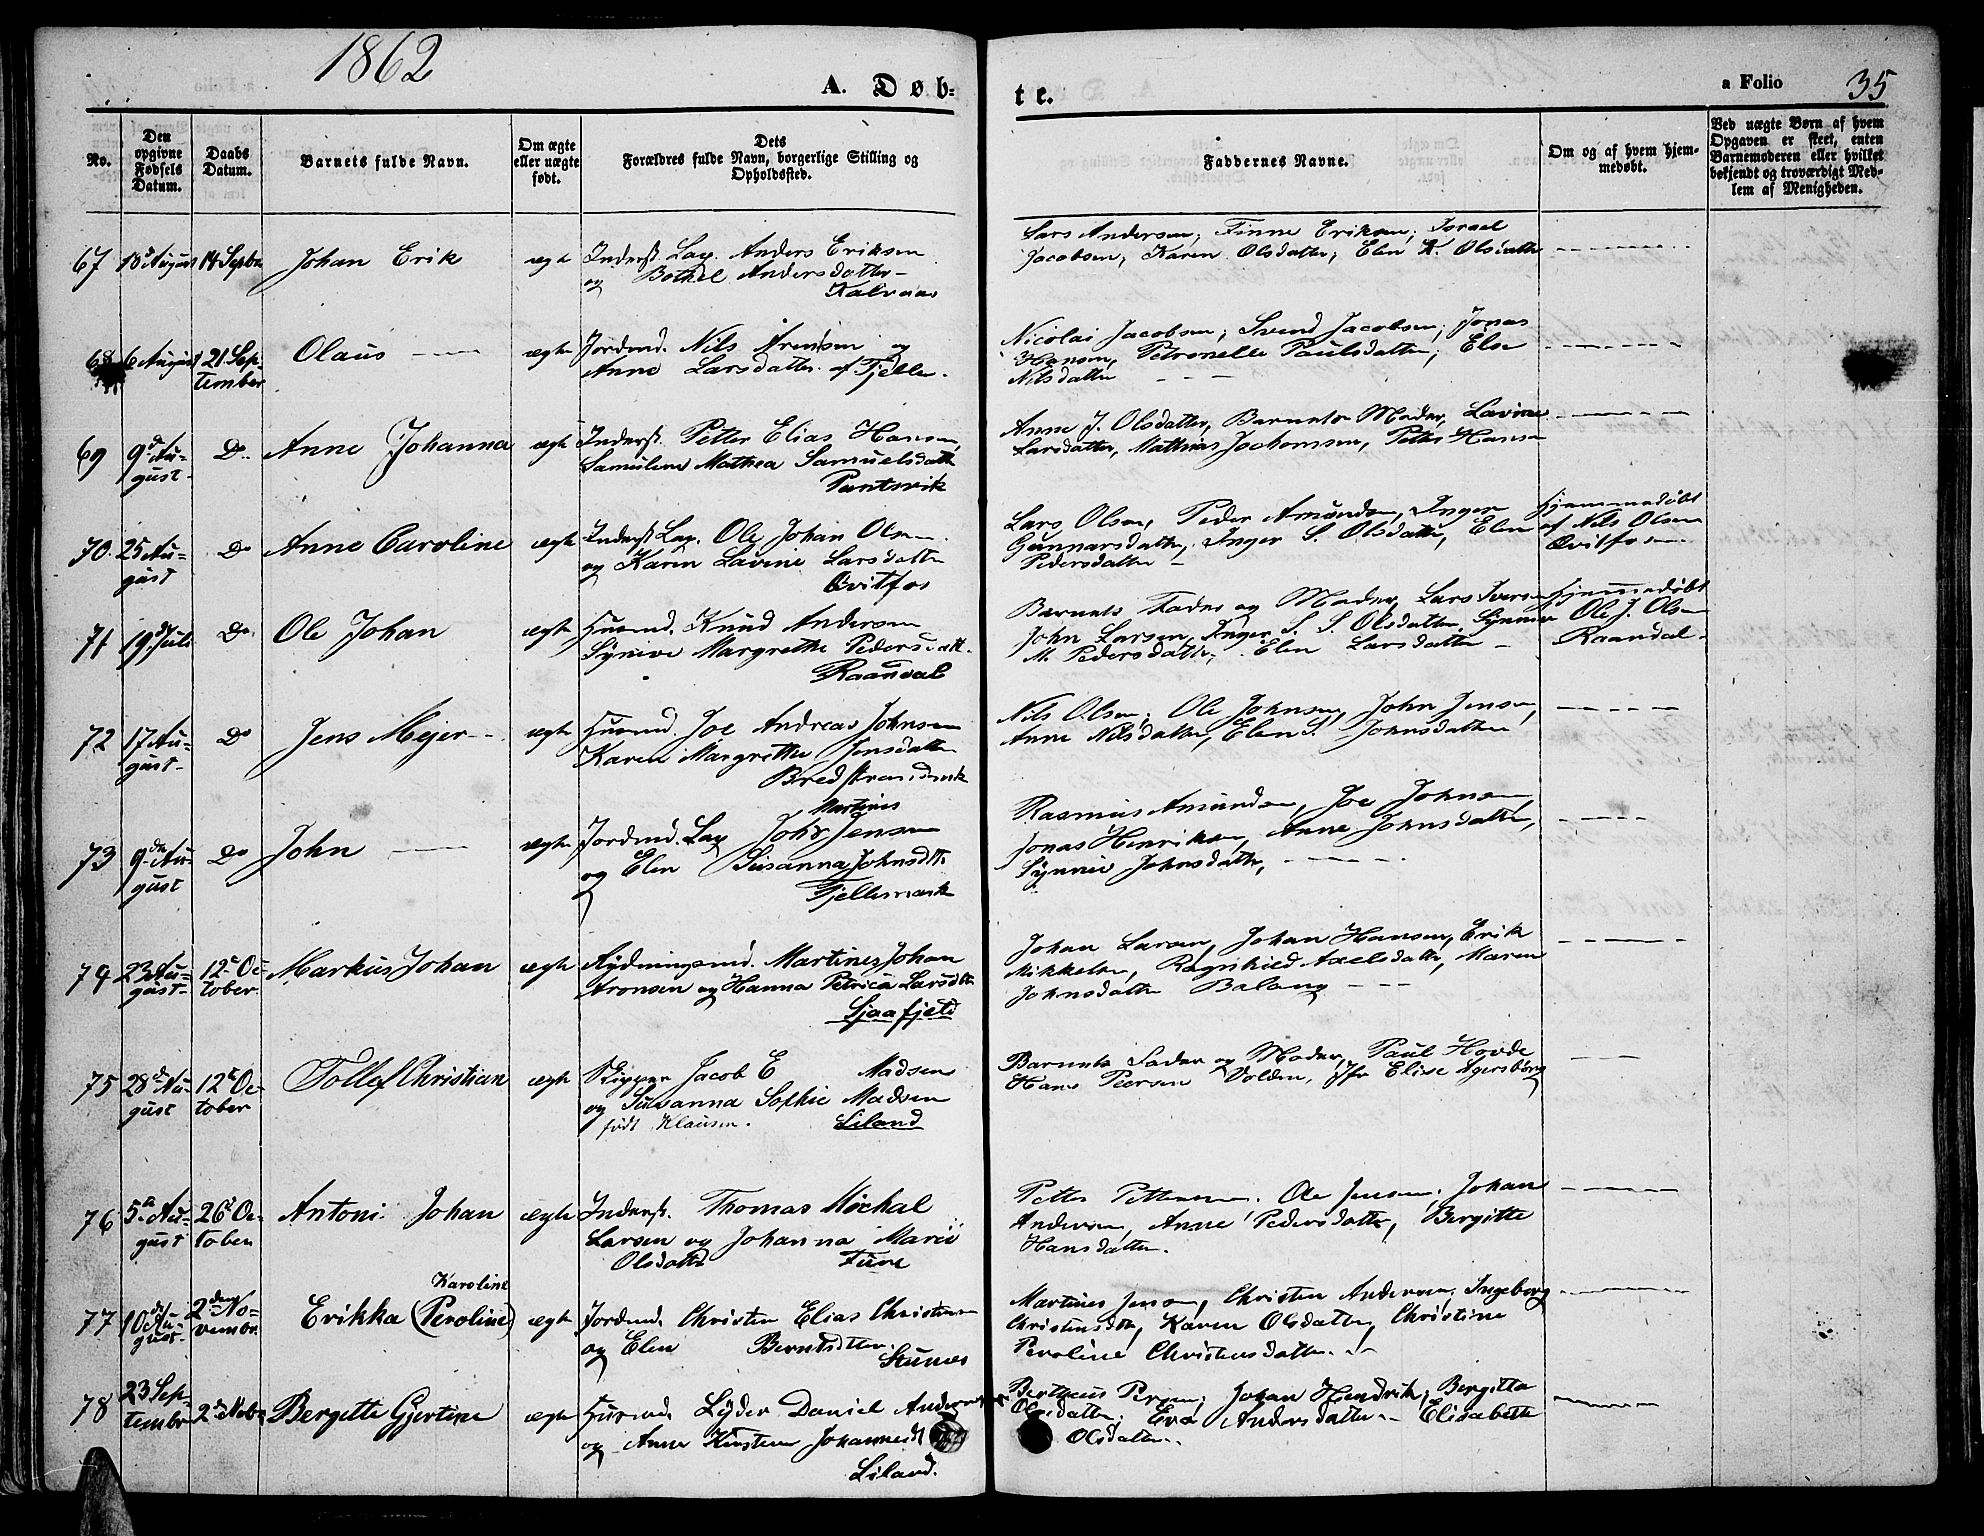 1862
A. Døb-
te.
a Folio 35
No.
Den opgivne Fødsels Datum.
Daabs Datum.
Barnets fulde Navn.
Om ægte eller uægte født.
Dets Forældres fulde Navn, borgerlige Stilling og Opholdssted.
Faddernes Navne.
Om og af hvem hjemmedøbt.
Ved uægte Børn af hvem Opgaven er skeet, enten Barnemoderen eller hvilket bekjendt og troværdigt Medlem af Menigheden.
67 18 August 14 Septbr Johan Erik ægte Inderst. Lap. Anders Eriksen
og Bothel Andersdatter
Kalvaas
Lars Andersen, Finne Eriksen, Israel
Jacobsen, Karen Olsdatter, Elen K. Olsdatter
68 6 August 21 Sep-
tember
Olaus ægte Jordmd. Nils Arentsen og
Anne Larsdatter af Fjelln.
Nicolai Jacobsen, Svend Jacobsen, Jonas
Hansen, Petronelle Paulsdatter, Elen
Nilsdatter
69 9de Au-
gust
Do Anne Johanna ægte Inderst. Petter Elias Hansen,
Samuline Mathea Samuelsdatt
Pantsvik
Anne J. Olsdatter, Barnets Moder, Lavine
Larsdatter, Mathias Jochomsen, Petter Hansen
70. 25 Au-
gust
Do Anne Caroline ægte Inderst Lap. Ole Johan Olsen
og Karen Lavine Larsdatter
Qvitfos
Lars Olsen, Peder Amundsen, Inger
Gunnarsdatter, Inger S. Olsdatter, Elen
Pedersdatter
Hjemmedøbt
af Nils Olsen
Qvitfos
71 19de Juli Do Ole Johan ægte Husmd. Knud Andersen
Syneve Margrethe Pedersdatt.
Raandal
Barnets Fader og Moder, Lars Iversen
John Larsen, Inger S. S. Olsdatter, Synneve
M. Pedersdatter, Elen Larsdatter
Hjemmedøbt
Ole J. Olsen
Raandal
72 17 Au-
gust
Do Jens Mejer ægte Husmd. Joe Andreas Johnsen
Karen Margrethe Jensdatter
Bredstrandmrk
Nils Olsen, Ole Johnsen, John Jensen,
Anne Nilsdatter, Elen S. Johnsdatter
73 9de Au-
gust
Do John ægte Jordmd. Lap
Martines
John Jensen
og Elen Susanna Johnsdtr
Fjellemark
Rasmus Amundsen, Joe Johnsen,
Jonas Henriksen, Anne Johnsdatter,
Synneve Johnsdatter,
74 23 Au-
gust
12 Oc-
tober
Markus Johan ægte Rydningsmd. Martines Johan
Aronsen og Hanna Petrica Larsdtr
Sjaafjeld
Johan Larsen, Johan Hansen, Erik
Mikkelsen, Ragnhild Axelsdatter, Maren
Johnsdatter Balang
75 28de Au-
gust
12 Oc-
tober
Tollef Christian ægte Skipper Jacob E Madsen
og Susanna Sophie Madsen
født Klausen. Liland
Barnets Fader og Moder, Paul Hovde
Hans Peersen Volden, Jfr Elise Agersborg
76 5te Au-
gust
26 Oc-
tober
Antoni Johan ægte Inderst. Thomas Mechal
Larsen og Johanna Marie
Olsdatter
Petter Pettersen, Ole Jensen, Johan
Andersen, Anne Pedersdatter, Bergitte
Hansdatter.
77 10de Au-
gust
2den No-
vembr.
Karoline
Erikka (Peroline) ægte Jordmd. Christen Elias Christensen
og Elen Berntsdtter.
Stunes
Martines Jensen, Christen Andersen, Ingeborg
Christensdtr, Karen Olsdatter, Christine
Peroline Christensdatter.
78 23 Sep-
tembr
2 Novbr Bergette Gjertine ægte Husmd. Lyder Daniel Andersen
og Anne Kirstine Johannesdt
Liland.
Bertheus Persen, Johan Hendrik, Bergitta
Olsdatter, Eva Andersdatter, Elisabeth
Olsdatter.